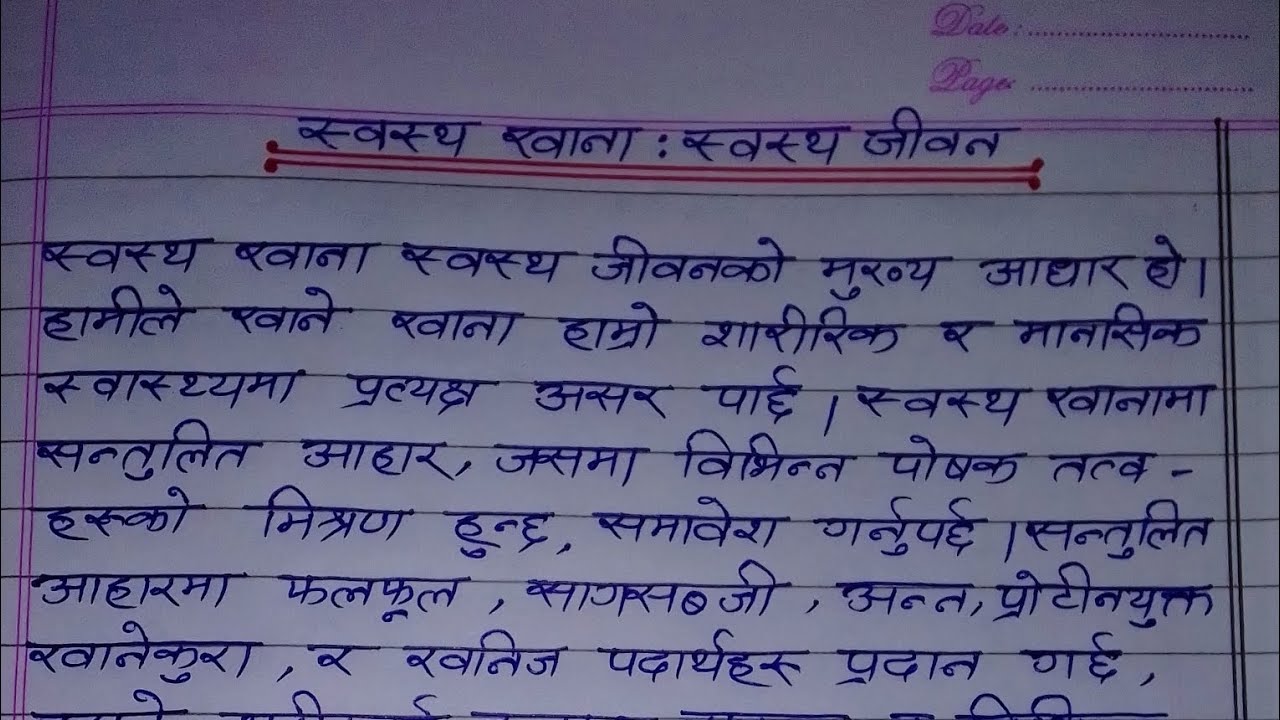 Date:
Page:
स्वस्थ खाना : स्वस्थ जीवन
स्वस्थ खाना स्वस्थ जीवनको मुख्य आधार हो।
हामीले खाने खाना हाम्रो शारीरिक र मानसिक
स्वास्थ्यमा प्रत्यक्ष असर पार्छ । स्वस्थ खानामा
सन्तुलित आहार, जसमा विभिन्न पोषक तत्व -
हरूको मिश्रण हुन्छ, समावेश गर्नुपर्छ । सन्तुलित
आहारमा फलफूल , सागसब्जी , अन्न, प्रोटीनयुक्त
खानेकुरा , र खनिज पदार्थहरू प्रदान गर्छ ,